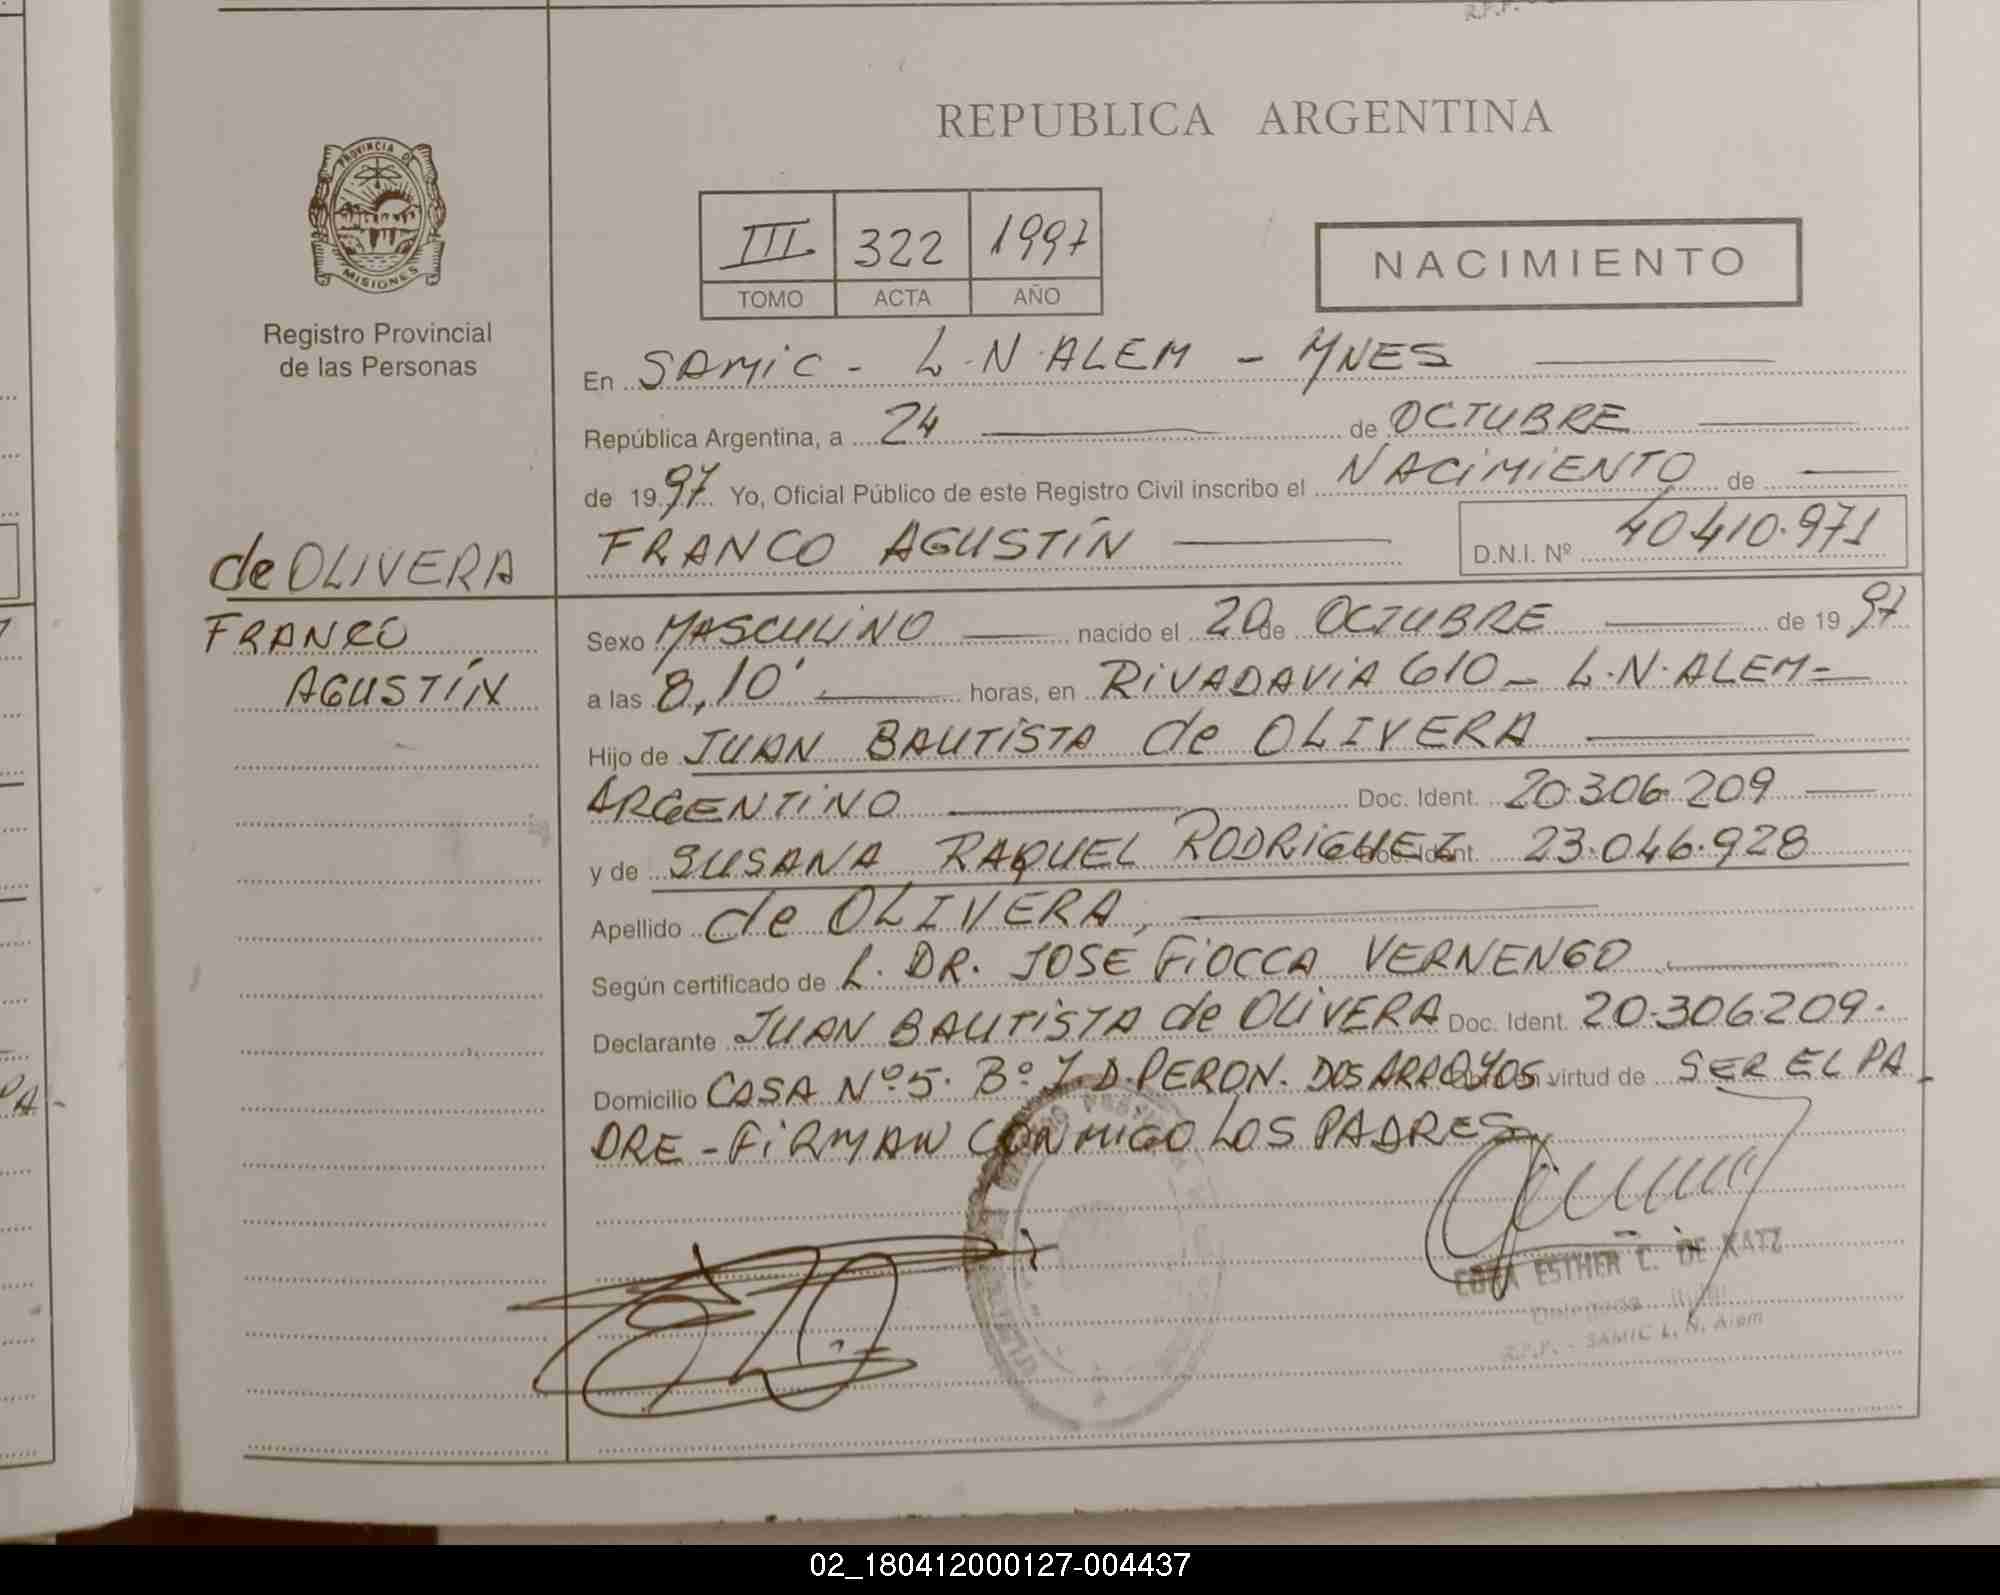 REPUBLICA ARGENTINA
PROVINCIA DE
MISIONES
Registro Provincial
de las Personas
III 322 1997
TOMO ACTA AÑO
NACIMIENTO
En SAMIC - L.N. ALEM - MNES
República Argentina, a 24 de OCTUBRE
de 1997 Yo, Oficial Público de este Registro Civil inscribo el NACIMIENTO de
FRANCO AGUSTÍN D.N.I. Nº 40.410.971
de OLIVERA
FRANCO
AGUSTÍN
Sexo MASCULINO nacido el 20 de OCTUBRE de 1997
a las 8,10' horas, en RIVADAVIA 610 - L.N. ALEM=
Hijo de JUAN BAUTISTA de OLIVERA
ARGENTINO Doc. Ident. 20.306.209
y de SUSANA RAQUEL RODRIGUEZ Doc. Ident. 23.046.928
Apellido de OLIVERA,
Según certificado de L. DR. JOSÉ FIOCCA VERNENGO
Declarante JUAN BAUTISTA de OLIVERA Doc. Ident. 20.306.209.
Domicilio CASA Nº 5. Bº J.D. PERON. DOS ARROYOS virtud de SER EL PA
DRE - FIRMAN CONMIGO LOS PADRES
ESTHER C. DE KATZ
R.P.P. - SAMIC L. N. Alem
PA-
02_180412000127-004437